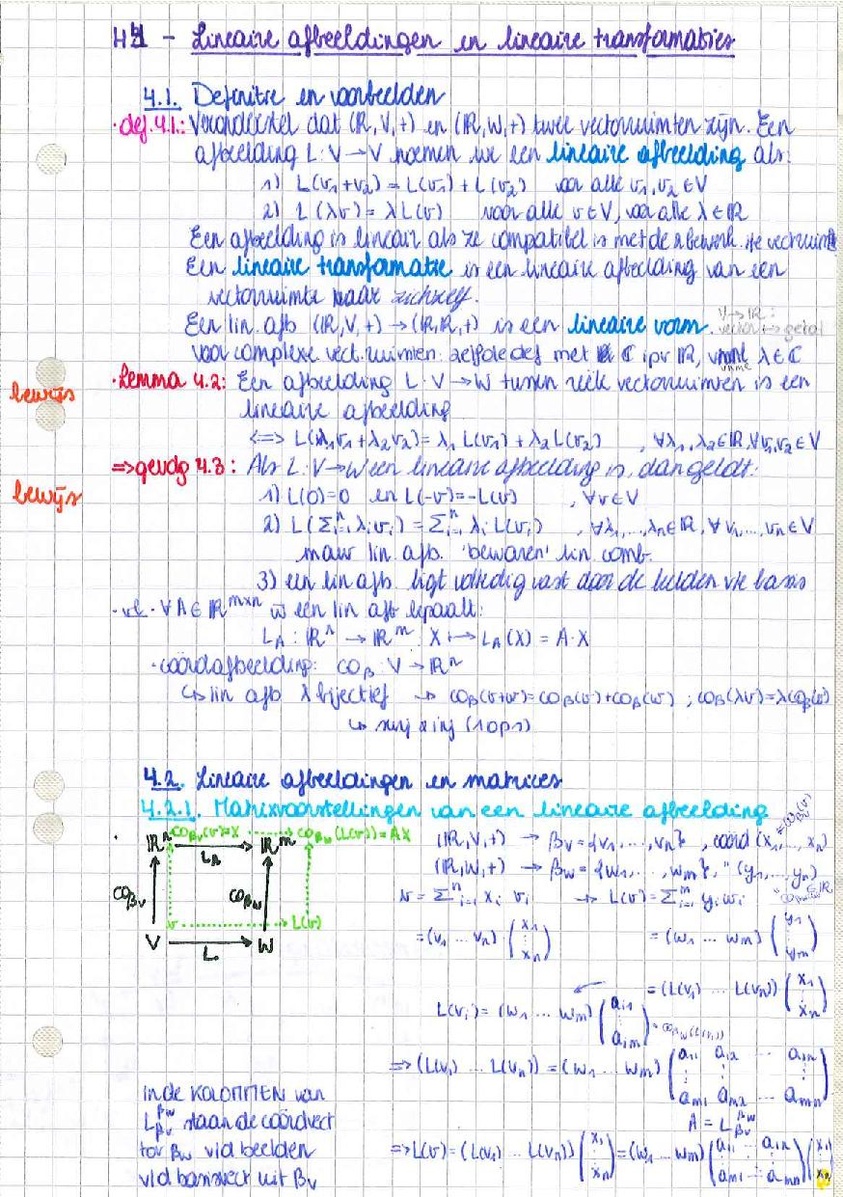 H4 - Lineaire afbeeldingen en lineaire transformaties
4.1. Definitie en voorbeelden
·def.4.1.: Veronderstel dat (ℝ,V,+) en (ℝ,W,+) twee vectorruimten zijn. Een
afbeelding L: V→V noemen we een lineaire afbeelding als:
1) L(v₁+v₂) = L(v₁) + L(v₂) voor alle v₁,v₂ ∈ V
2) L(λv) = λL(v) voor alle v ∈ V, voor alle λ ∈ ℝ
Een afbeelding is lineair als ze compatibel is met de bewerk.
Een lineaire transformatie is een lineaire afbeelding van een
vectorruimte naar zichzelf.
Een lin. afb (ℝ,V,+) → (ℝ,ℝ,+) is een lineaire vorm. V→ℝ: vector ↦ getal
voor complexe vect. ruimten: zelfde def met ℂ ipv ℝ, λ ∈ ℂ
bewijs
·Lemma 4.2: Een afbeelding L: V→W tussen reële vectorruimten is een
lineaire afbeelding
⟺ L(λ₁v₁+λ₂v₂) = λ₁L(v₁) + λ₂L(v₂) , ∀λ₁,λ₂∈ℝ,∀v₁,v₂∈V
bewijs
⇒gevolg 4.3: Als L: V→W een lineaire afbeelding is, dan geldt:
1) L(0)=0 en L(-v)=-L(v) , ∀v∈V
2) L(Σⁿᵢ₌₁ λᵢvᵢ) = Σⁿᵢ₌₁ λᵢL(vᵢ) , ∀λ₁,...,λₙ∈ℝ, ∀v₁,...,vₙ∈V
maw lin. afb. 'bewaren' lin comb.
3) een lin afb. ligt volledig vast door de beelden v/e basis
·vb · ∀A∈ℝᵐˣⁿ w een lin afb bepaalt:
L_A : ℝⁿ → ℝᵐ: X ↦ L_A(X) = A·X
·coördafbeelding: co_β: V→ℝⁿ
↳ lin afb & bijectief → co_β(v+w)=co_β(v)+co_β(w) ; co_β(λv)=λco_β(v)
↳ surj & inj (1op1)
4.2. Lineaire afbeeldingen en matrices
4.2.1. Matrixvoorstellingen van een lineaire afbeelding
· ℝⁿ co_βV(v)=X → co_βW(L(v))=AX
L_A → ℝᵐ
co_βV co_βW
v → L(v)
V L → W
(ℝ,V,+) → βV = {v₁,...,vₙ}, coörd (x₁,...,xₙ) =co_βV(v)
(ℝ,W,+) → βW = {w₁,...,wₘ}, " (y₁,...,yₙ)
v = Σⁿᵢ₌₁ xᵢ vᵢ → L(v) = Σᵐᵢ₌₁ yᵢwᵢ
= (v₁ ... vₙ) (x₁ ⋮ xₙ) = (w₁ ... wₘ) (y₁ ⋮ yₘ)
= (L(v₁) ... L(vₙ)) (x₁ ⋮ xₙ)
L(vᵢ) = (w₁ ... wₘ) (aᵢ₁ ⋮ aᵢₘ) = co_βW(L(vᵢ))
⇒ (L(v₁) ... L(vₙ)) = (w₁ ... wₘ) (a₁₁ a₁₂ ... a₁ₙ ⋮ aₘ₁ aₘ₂ ... aₘₙ)
A = L_βV^βW
⇒ L(v) = (L(v₁) ... L(vₙ)) (x₁ ⋮ xₙ) = (w₁ ... wₘ) (a₁₁ ... a₁ₙ ⋮ aₘ₁ ... aₘₙ) (x₁ ⋮ xₙ)
in de KOLOMMEN van
L_βV^βW staan de coördvect
tov βW v/d beelden
v/d basisvect uit βV